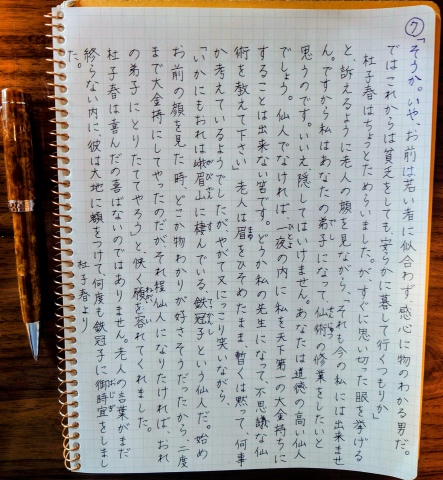 ⑦
「そうか。いや、お前は若い者に似合わず、感心に物のわかる男だ。
ではこれからは貧乏をしても、安らかに暮して行くつもりか」
杜子春はちょっとためらいました。が、すぐに思い切った眼を挙げる
と、訴えるように老人の顔を見ながら、「それも今の私には出来ませ
ん。ですから私はあなたの弟子になって、仙術の修業をしたいと
思うのです。いいえ、隠してはいけません。あなたは道徳の高い仙人
でしょう。仙人でなければ、一夜の内に私を天下第一の大金持ちに
することは出来ない筈です。どうか私の先生になって、不思議な仙
術を教えて下さい」老人は眉をひそめたまま、暫くは黙って、何事
か考えているようでしたが、やがて又にっこり笑いながら、
「いかにもおれは峨眉山に棲んでいる、鉄冠子という仙人だ。始め
お前の顔を見た時、どこか物わかりが好さそうだったから、二度
まで大金持にしてやったのだが、それ程仙人になりたければ、おれ
の弟子にとりたててやろう」と、快く願を容れてくれました。
杜子春は喜んだの喜ばないのではありません。老人の言葉がまだ
終らない内に、彼は大地に額をつけて、何度も鉄冠子に御時宜をしまし
た。
杜子春より